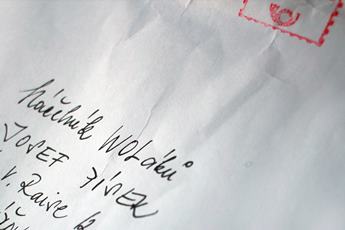 Náčelník WOLáků
JOSEF JÍSEK
V. Raise